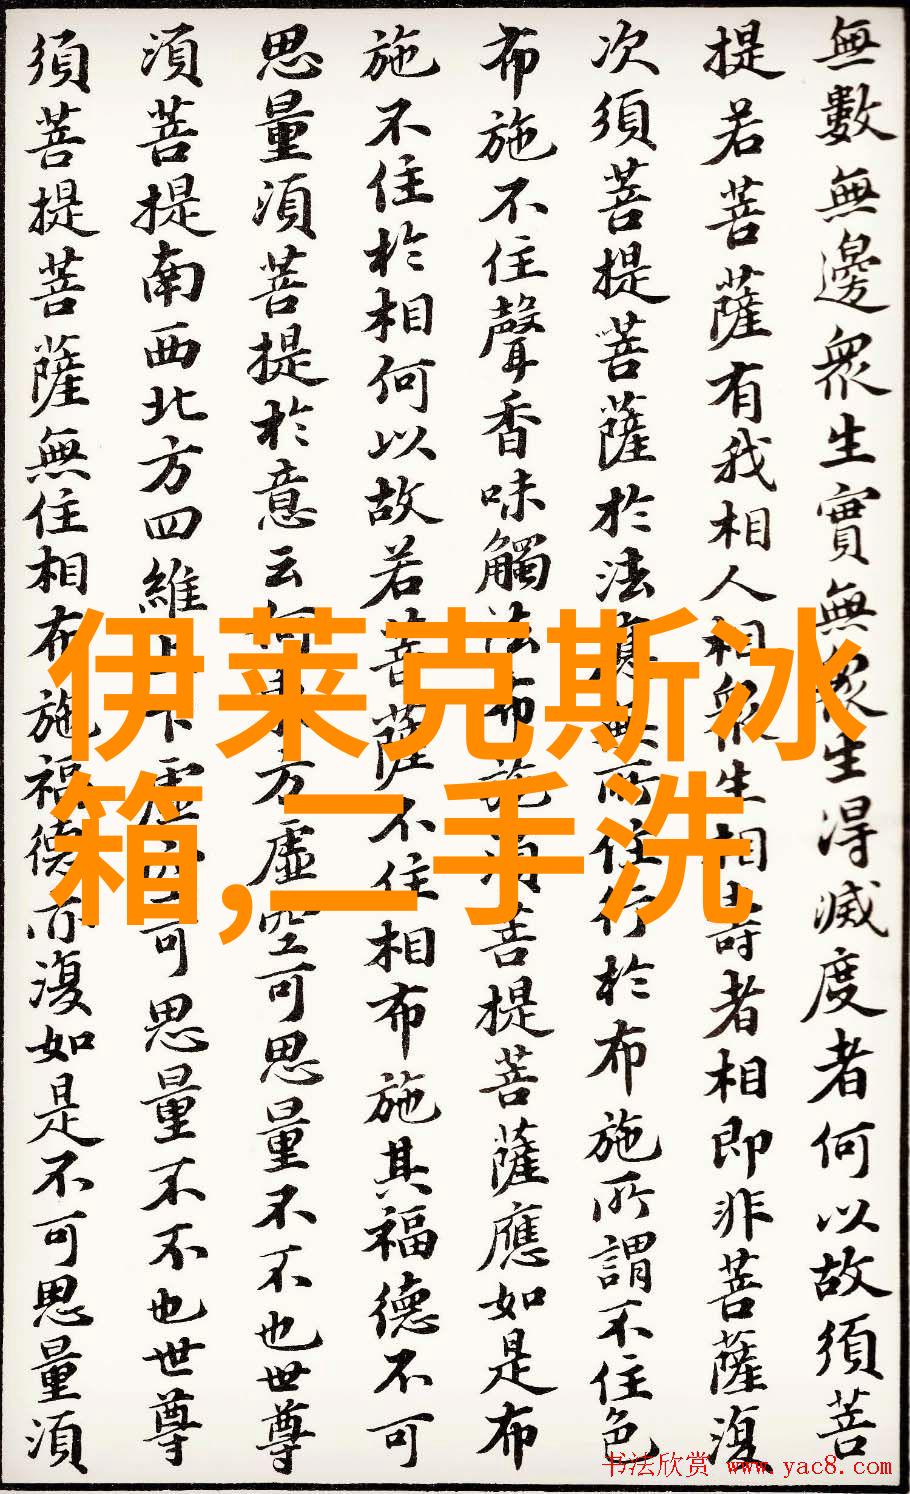 無數無邊衆生實無衆生得滅度者何以故須菩
提若菩薩有我相人相衆生相壽者相即非菩薩復
次須菩提菩薩於法應無所住行於布施所謂不住色
布施不住聲香味觸法布施須菩提菩薩應如是布
施不住於相何以故若菩薩不住相布施其福德不可
思量須菩提於意云何東方虛空可思量不不也世尊
須菩提南西北方四維上下虛空可思量不不也世尊
須菩提菩薩無住相布施福德亦復如是不可思量須
伊莱克斯冰
箱,二手洗
书法欣赏 www.yac8.com